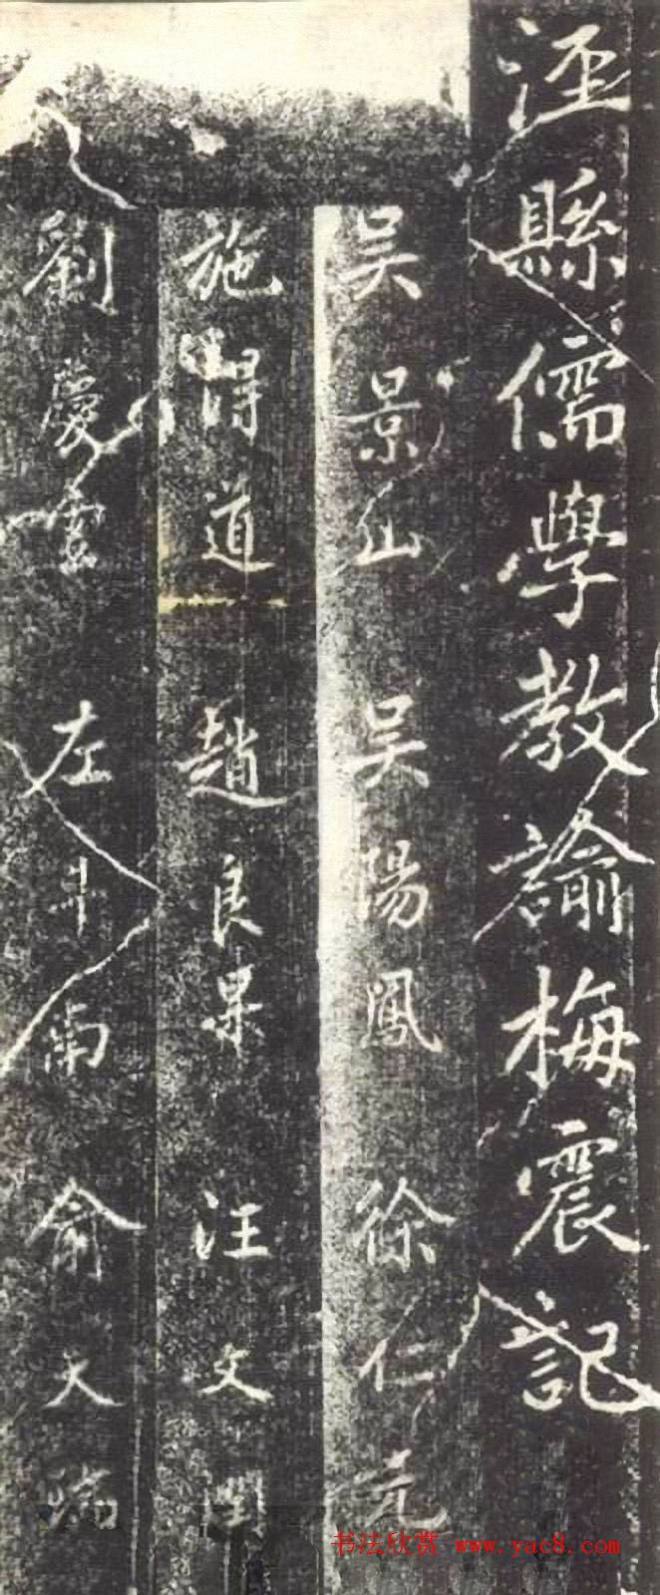 涇縣儒學教諭梅震記
吳景仙 吳陽鳳 徐仁元
施得道 趙良果 汪文閏
劉慶雲 左斗南 俞天瑞
书法欣赏 www.yac8.com